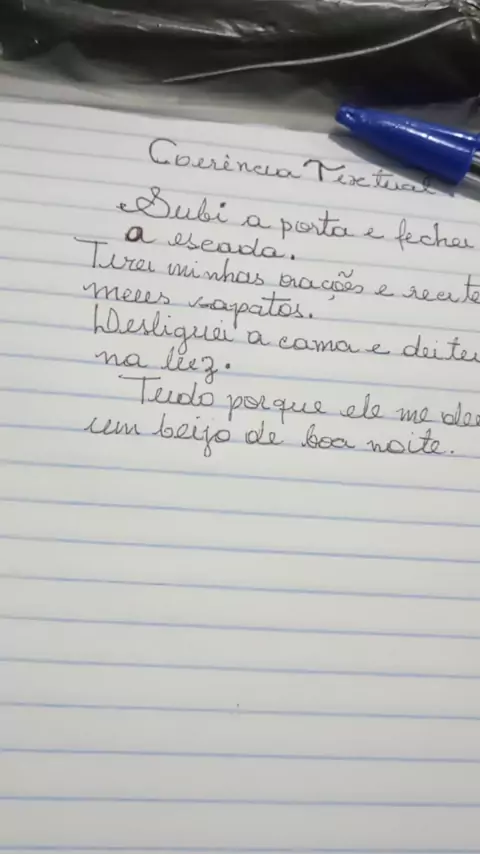 Coerência Textual
Subi a porta e fechei
a escada.
Tirei minhas orações e recite
meus sapatos.
Desliguei a cama e deitei
na luz.
Tudo porque ele me de
um beijo de boa noite.